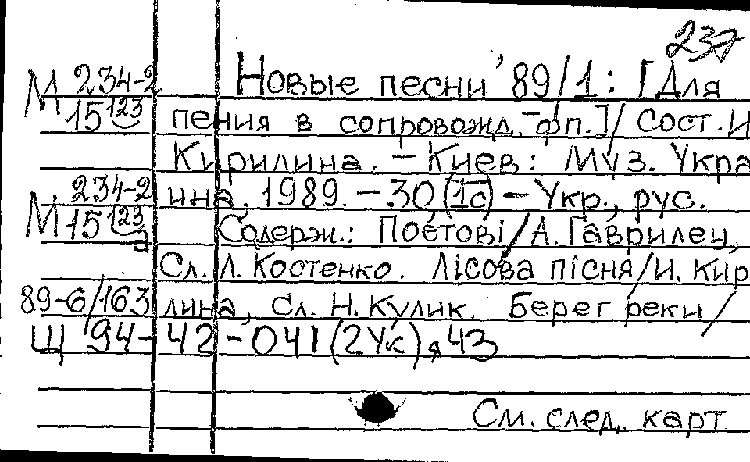 237
М 234-2 Новые песни '89/1: [Для
15 123 пения в сопровожд. фп.]/ Сост. И
Кирилина. – Киев: Муз. Укра
М 234-2 ина, 1989. – 30,(1с) – Укр., рус.
15 123 Содерж.: Поетові/А. Гаврилец,
а Сл. Л. Костенко. Лісова пісня/И. Кир
89-6/163 лина, Сл. Н. Кулик. Берег реки/
Щ 94-42-041(2Ук)я43
См. след. карт